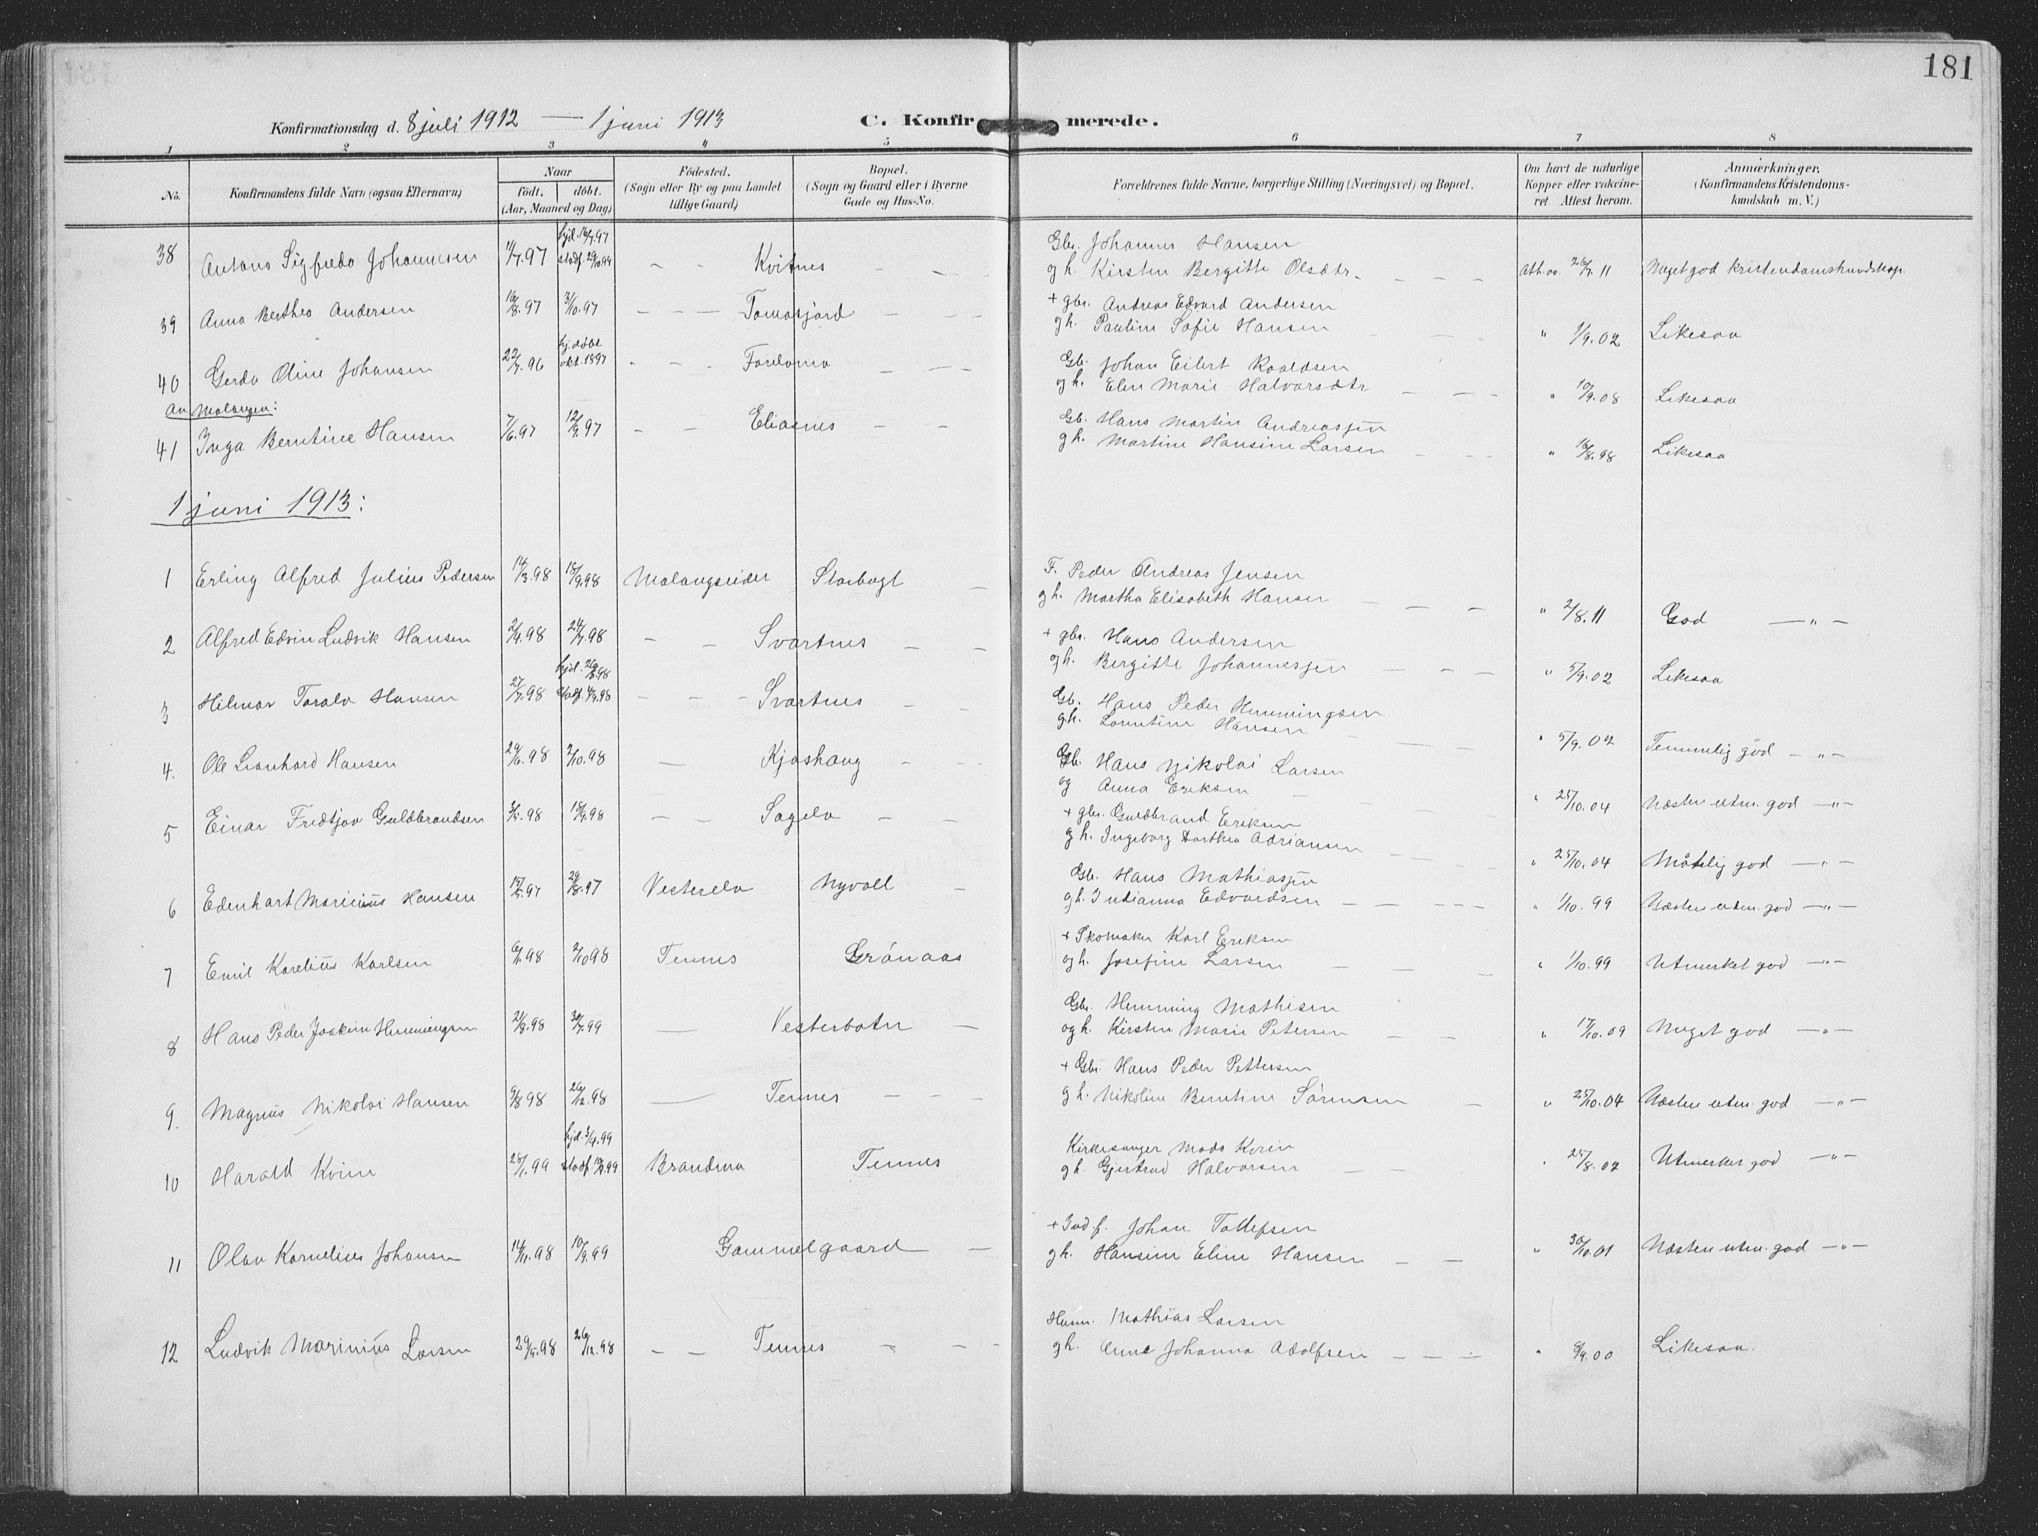 181
Konfirmationsdag d. 8 juli 1912 — 1 juni 1913 C. Konfirmerede.
1 2 3 4 5 6 7 8
No. Konfirmandens fulde Navn (ogsaa Efternavn) Naar født. døbt. (Aar, Maaned og Dag) Fødested. (Sogn eller By og paa Landet tillige Gaard) Bopæl. (Sogn og Gaard eller i Byerne Gade og Hus-No. Forældrenes fulde Navne, borgerlige Stilling (Næringsvei) og Bopæl. Om havt de naturlige Kopper eller vakcineret. Attest herom. Anmærkninger. (Konfirmandens Kristendomskundskab m. V.)
38 Antons Sigfredo Johannesen 97 Kvitnes Gbr. Johannes Hansen
og h. Kirsten Bergitte Olsdtr. 11 Meget god kristendomskundskap.
39 Anna Berthea Andersen 16/8.97 3/10.97 Tomasjord + gbr. Andreas Edvard Andersen
g h. Pauline Sofie Hansen " 1/9.02 Likesaa
40 Gerda Oline Johansen 22/7.96 hj.døbt okt. 1897 Gb. Johan Eilert Roaldsen
og h. Elen Marie Halvorsdtr " 10/9.08 Likesaa
Av Malangen:
41 Inga Berntine Hansen 7/6.97 97 Eliasnes Gb. Hans Martin Andreassen
g h. Martine Hansine Larsen " 16/8.98 Likesaa
1 juni 1913:
1 Erling Alfred Julius Pedersen 14/3.98 15/9.98 Malangseidet Storbugt F. Peder Andreas Jensen
g h. Martha Elisabeth Hansen " 2/8.11 God — " —
2 Alfred Edvin Ludvik Hansen 98 24/7.98 — Svartnes + gbr. Hans Andersen
gh. Bergitte Johannessen " 5/9.02 Likesaa
3 Hilmar Toralv Hansen 27/7.98 Svartnes Gb. Hans Peder Hemmingsen
gh. Lorentine Hansen " 5/9.02 Temmelig god — " —
4. Ole Leonhard Hansen 29/6.98 2/10.98 — Kjoshaug Gb. Hans Nikolai Larsen
og Anna Eriksen " 25/10.04 Næsten utm. god — " —
5 Einar Fredtjov Guldbrandsen 98 18/9.98 Sagelv + gbr. Guldbrand Eriksen
g h. Ingeborg Dorthea Adriansen " 25/10.04 Måtelig god — " —
6 Edenhart Maricius Hansen 97 29/8.97 Vesterelv Nyvoll Gb. Hans Mathiassen
g h. Indianna Edvardsen " 1/10.99 Næsten utm. god — " —
7 Emil Karelius Karlsen 98 2/10 98 Tennes Grønaas + Skomaker Karl Eriksen
og h. Josefine Larsen " 1/10.99 Utmerket god — " —
8 Hans Peder Joakim Hemmingsen 21/9.98 30/7.99 — Vesterbotn Gbr. Hemming Mathisen
og h. Kirsten Marie Petersen " 17/10.09 Meget god — " —
9. Magnus Nikolai Hansen 9/8 98 26/12.98 — Tennes + Gbr. Hans Peder Pettersen
g h. Nikoline Berntine Sørensen " 25/10.04 Næsten utm. god — " —
10 Harald Kvien 28/1.99 hjd. 3/4.99 Brandmo Tennes Kirkesanger Mads Kvien
g h. Gjertrud Halvorsen " 25/8.02 Utmerket god — " —
11 Olav Kornelius Johansen 14/11.98 10/9.99 Gammelgaard + Ind.f. Johan Tollefsen
g h. Hansine Eline Hansen " 30/10.01 Næsten utm. god — " —
12 Ludvik Marinius Larsen 29/9.98 26/12.98 Tennes Husm. Mathias Larsen
g h. Anne Johanna Adolfsen " 8/9.00 Likesaa.